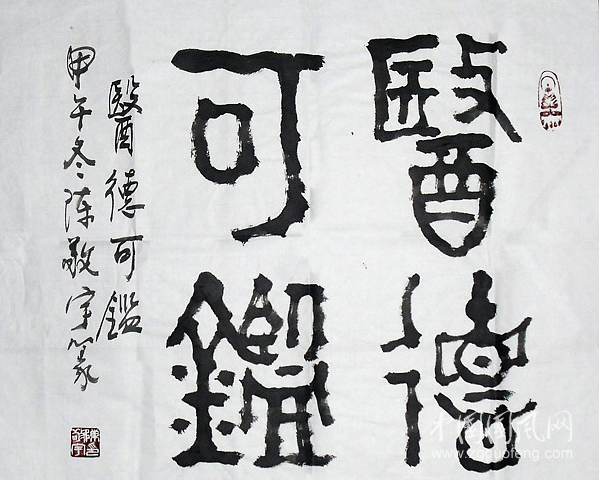 醫德
可鑑
醫德可鑑
甲午冬陈敬宇篆
中国国风网
www.cnguofeng.com